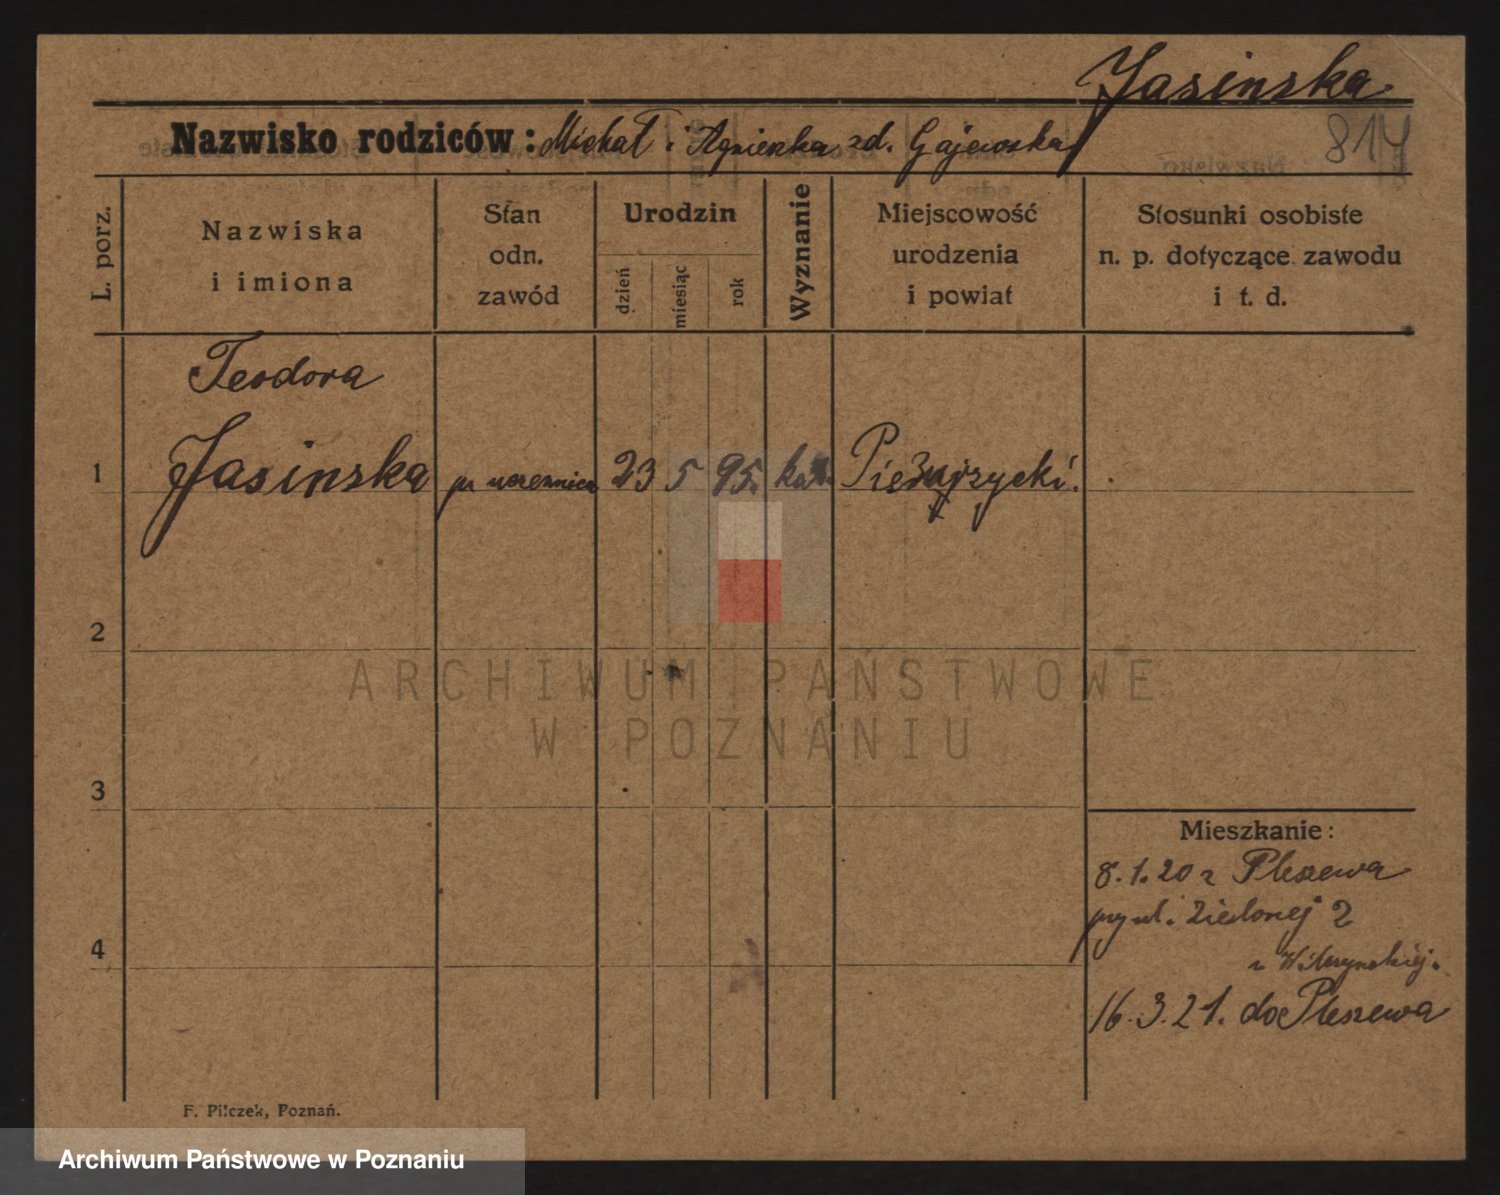 Jasinska
Nazwisko rodziców: Michał i Agnieszka zd. Gajewska
817
L. porz.
Nazwiska
i imiona
Stan
odn.
zawód
Urodzin
dzień
miesiąc
rok
Wyznanie
Miejscowość
urodzenia
i powiat
Stosunki osobiste
n. p. dotyczące zawodu
i t. d.
Teodora
1 Jasinska uczennica 23 5 95. kat.
2
3
4
Mieszkanie:
8.1.20 z Pleszewa
przy ul. Zielonej 2
16.3.21. do Pleszewa
F. Pilczek, Poznań.
ARCHIWUM PAŃSTWOWE
W POZNANIU
Archiwum Państwowe w Poznaniu